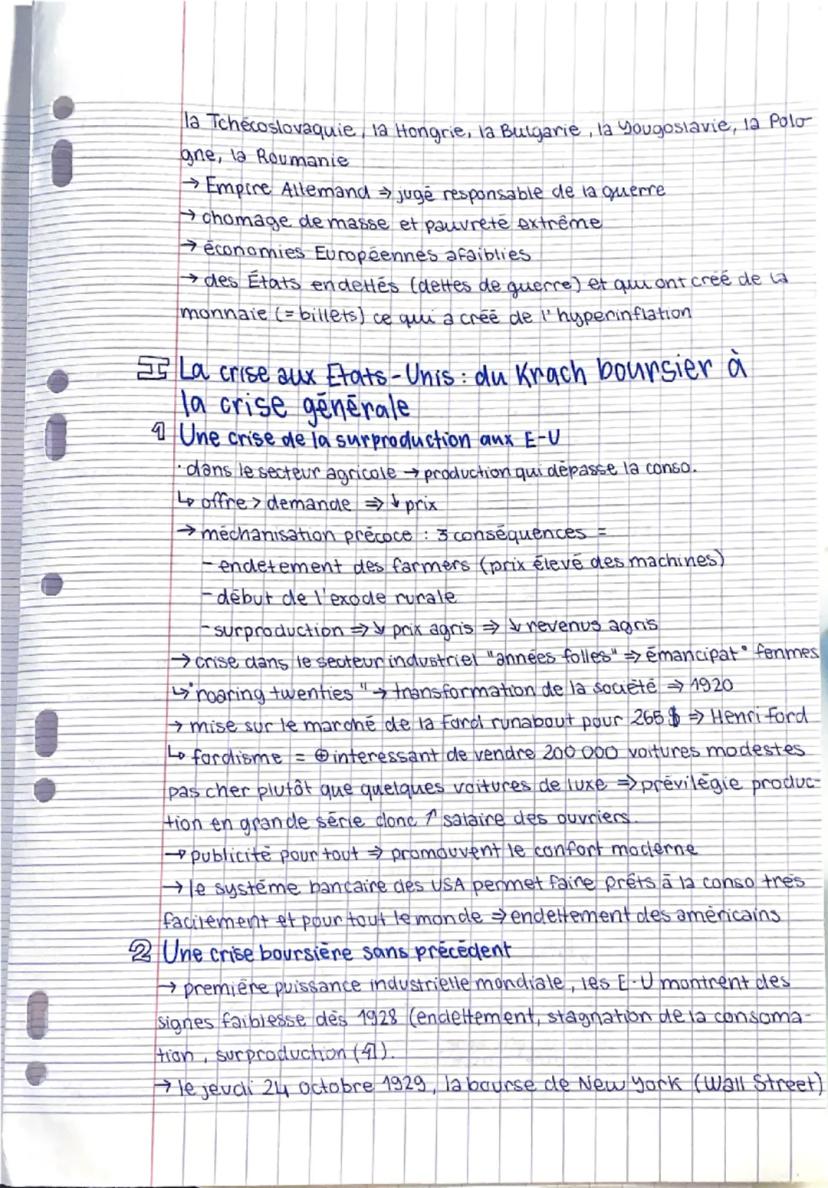 la Tchécoslovaquie, la Hongrie, la Bulgarie, la Yougoslavie, la Polo-
gne, la Roumanie
→ Empire Allemand ⇒ jugé responsable de la guerre
→ chomage de masse et pauvreté extrême
→ économies Européennes afaiblies
→ des États endettés (dettes de guerre) et qui ont créé de la
monnaie (= billets) ce qui a créé de l'hyperinflation
I La crise aux Etats-Unis : du Krach boursier à
la crise générale
1 Une crise de la surproduction aux E-U
· dans le secteur agricole → production qui dépasse la conso.
↳ offre > demande ⇒ ↓ prix
→ méchanisation précoce : 3 conséquences =
- endetement des farmers (prix élevé des machines)
- début de l'exode rurale
- surproduction ⇒ ↓ prix agris ⇒ ↓ revenus agris
→ crise dans le secteur industriel "années folles" ⇒ émancipat° femmes
↳ "roaring twenties" → transformation de la société ⇒ 1920
→ mise sur le marché de la Ford runabout pour 265 $ ⇒ Henri Ford
↳ fordisme = ⊕ interessant de vendre 200 000 voitures modestes
pas cher plutôt que quelques voitures de luxe ⇒ prévilégie produc-
tion en grande série donc ↑ salaire des ouvriers.
→ publicité pour tout ⇒ promouvent le confort moderne
→ le système bancaire des USA permet faire prêts à la conso très
facilement et pour tout le monde ⇒ endettement des américains
2 Une crise boursière sans précédent
→ première puissance industrielle mondiale, les E-U montrent des
signes faiblesse dès 1928 (endettement, stagnation de la consoma-
tion, surproduction (1).
→ le jeudi 24 octobre 1929, la bourse de New York (Wall Street)